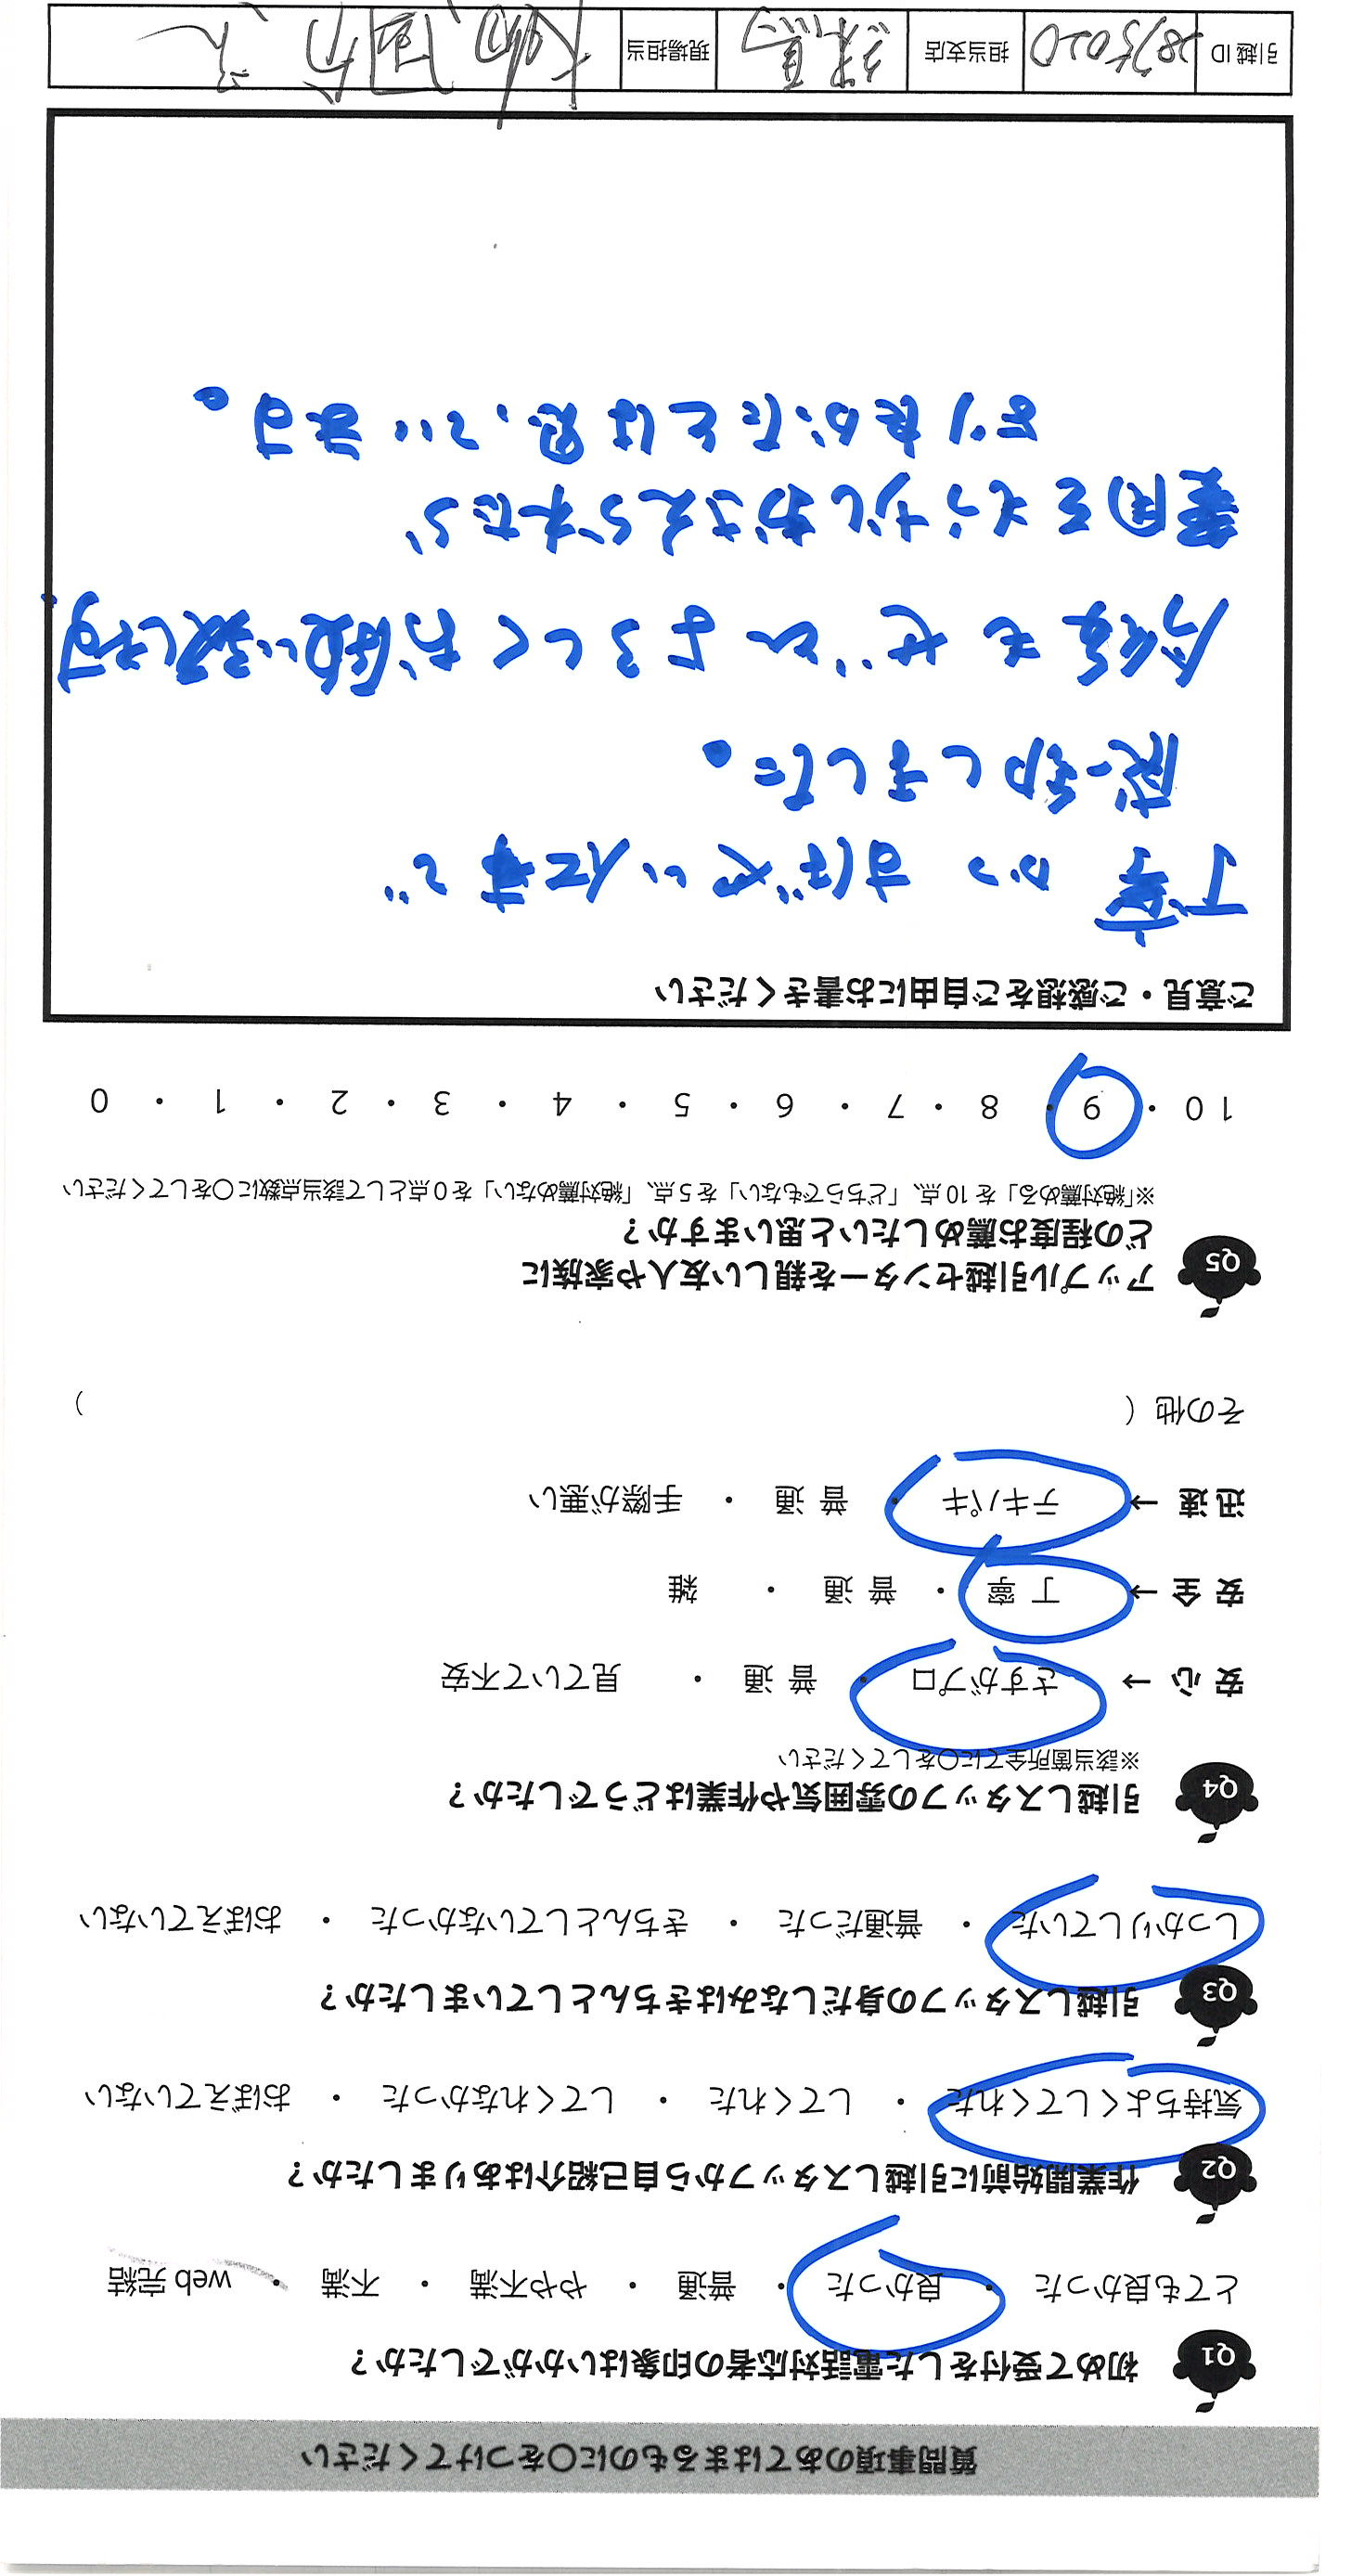 質問事項のあてはまるものに〇をつけてください
Q1 初めて受付をした電話対応者の印象はいかがでしたか？
とても良かった ・ 良かった ・ 普通 ・ やや不満 ・ 不満 ・ web 完結
Q2 作業開始前に引越しスタッフから自己紹介はありましたか？
気持ちよくしてくれた ・ してくれた ・ してくれなかった ・ おぼえていない
Q3 引越しスタッフの身だしなみはきちんとしていましたか？
しっかりしていた ・ 普通だった ・ きちんとしていなかった ・ おぼえていない
Q4 引越しスタッフの雰囲気や作業はどうでしたか？
※該当箇所全てに〇をしてください
安 心 → さすがプロ ・ 普 通 ・ 見ていて不安
安 全 → 丁 寧 ・ 普 通 ・ 雑
迅 速 → テキパキ ・ 普 通 ・ 手際が悪い
その他（ ）
Q5 アップル引越センターを親しい友人や家族に
どの程度お薦めしたいと思いますか？
※「絶対薦める」を 10 点、「どちらでもない」を 5 点、「絶対薦めない」を 0 点として該当点数に〇をしてください
10 ・ 9 ・ 8 ・ 7 ・ 6 ・ 5 ・ 4 ・ 3 ・ 2 ・ 1 ・ 0
ご意見・ご感想をご自由にお書きください
丁寧 かつ すばやい仕事で
感動しました。
今後も ぜひ よろしくお願い致します。
費用をもう少しおさえられたら
よりよかったとは思っています。
引越 ID 2875020 担当支店 練馬 現場担当